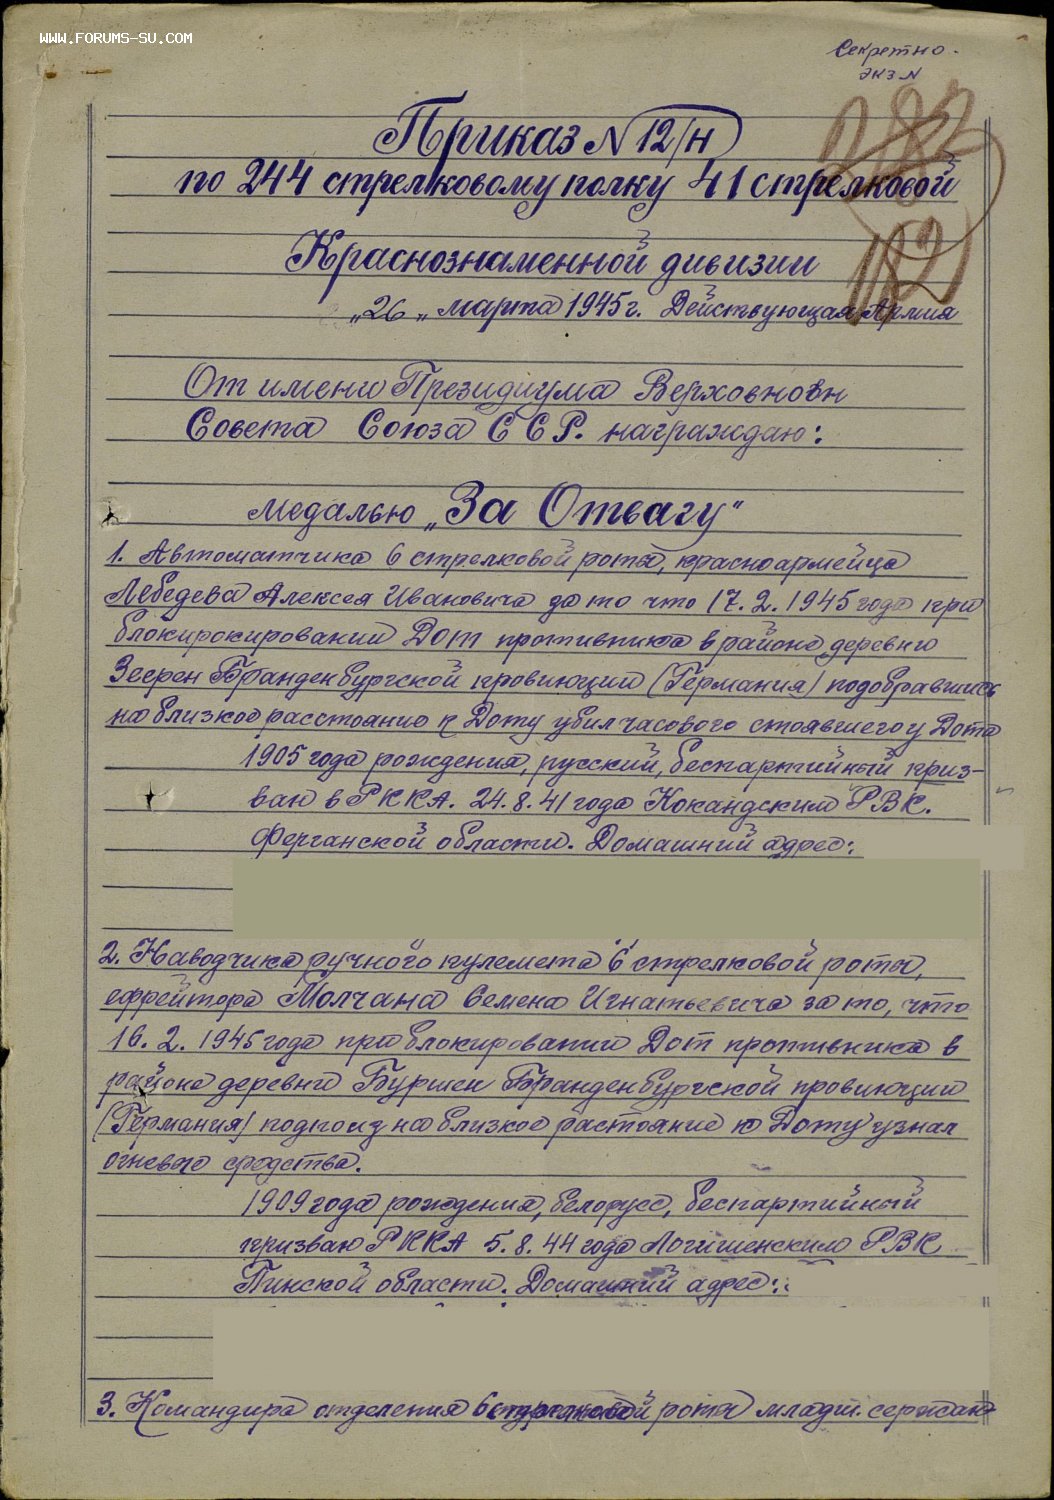 WWW.FORUMS-SU.COM
Секретно.
экз N
Приказ N 12/н
по 244 стрелковому полку 41 стрелковой
Краснознаменной дивизии
„26„ марта 1945г. Действующая Армия
От имени Президиума Верховновн
Совета Союза ССР. награждаю:
медалью „За Отвагу"
1. Автоматчика 6 стрелковой роты, красноармейца
Лебедева Алексея Ивановича за то что 17.2.1945 года при
блокирокировании Дот противника в районе деревни
Зеерен Бранденбургской провинции (Германия) подобравшись
на близкое расстояние к Доту убил часового стоявшего у Дота
1905 года рождения, русский, беспартийный приз-
ван в РККА. 24.8.41 года Кокандским РВК.
Ферганской области. Домашний адрес:
2. Наводчика ручного пулемета 6 стрелковой роты,
ефрейтора Молчана Семена Игнатьевича за то, что
16.2.1945 года при блокировании Дот противника в
районе деревни Буршен Бранденбургской провинции
(Германия) подполз на близкое растояние к Доту узнал
огневые средства.
1909 года рождения, белорусс, беспартийный
призван РККА 5.8.44 года Логишенским РВК
Пинской области. Домашний адрес:
3. Командира отделения 6 стрелковой роты младш. сержант